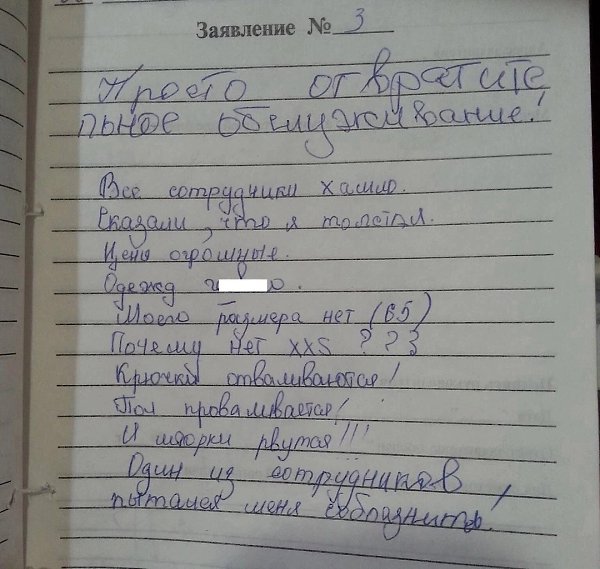 Заявление № 3
Просто отвратите
льное обслуживание!
Все сотрудники хамло.
Сказали, что я толстая.
Цены огромные.
Одежд г о.
Моего размера нет (65)
Почему нет XXS ???
Крючки отваливаются!
Пол проваливается!
И шторки рвутся!!!
Один из сотрудников
пытался меня соблазнить!